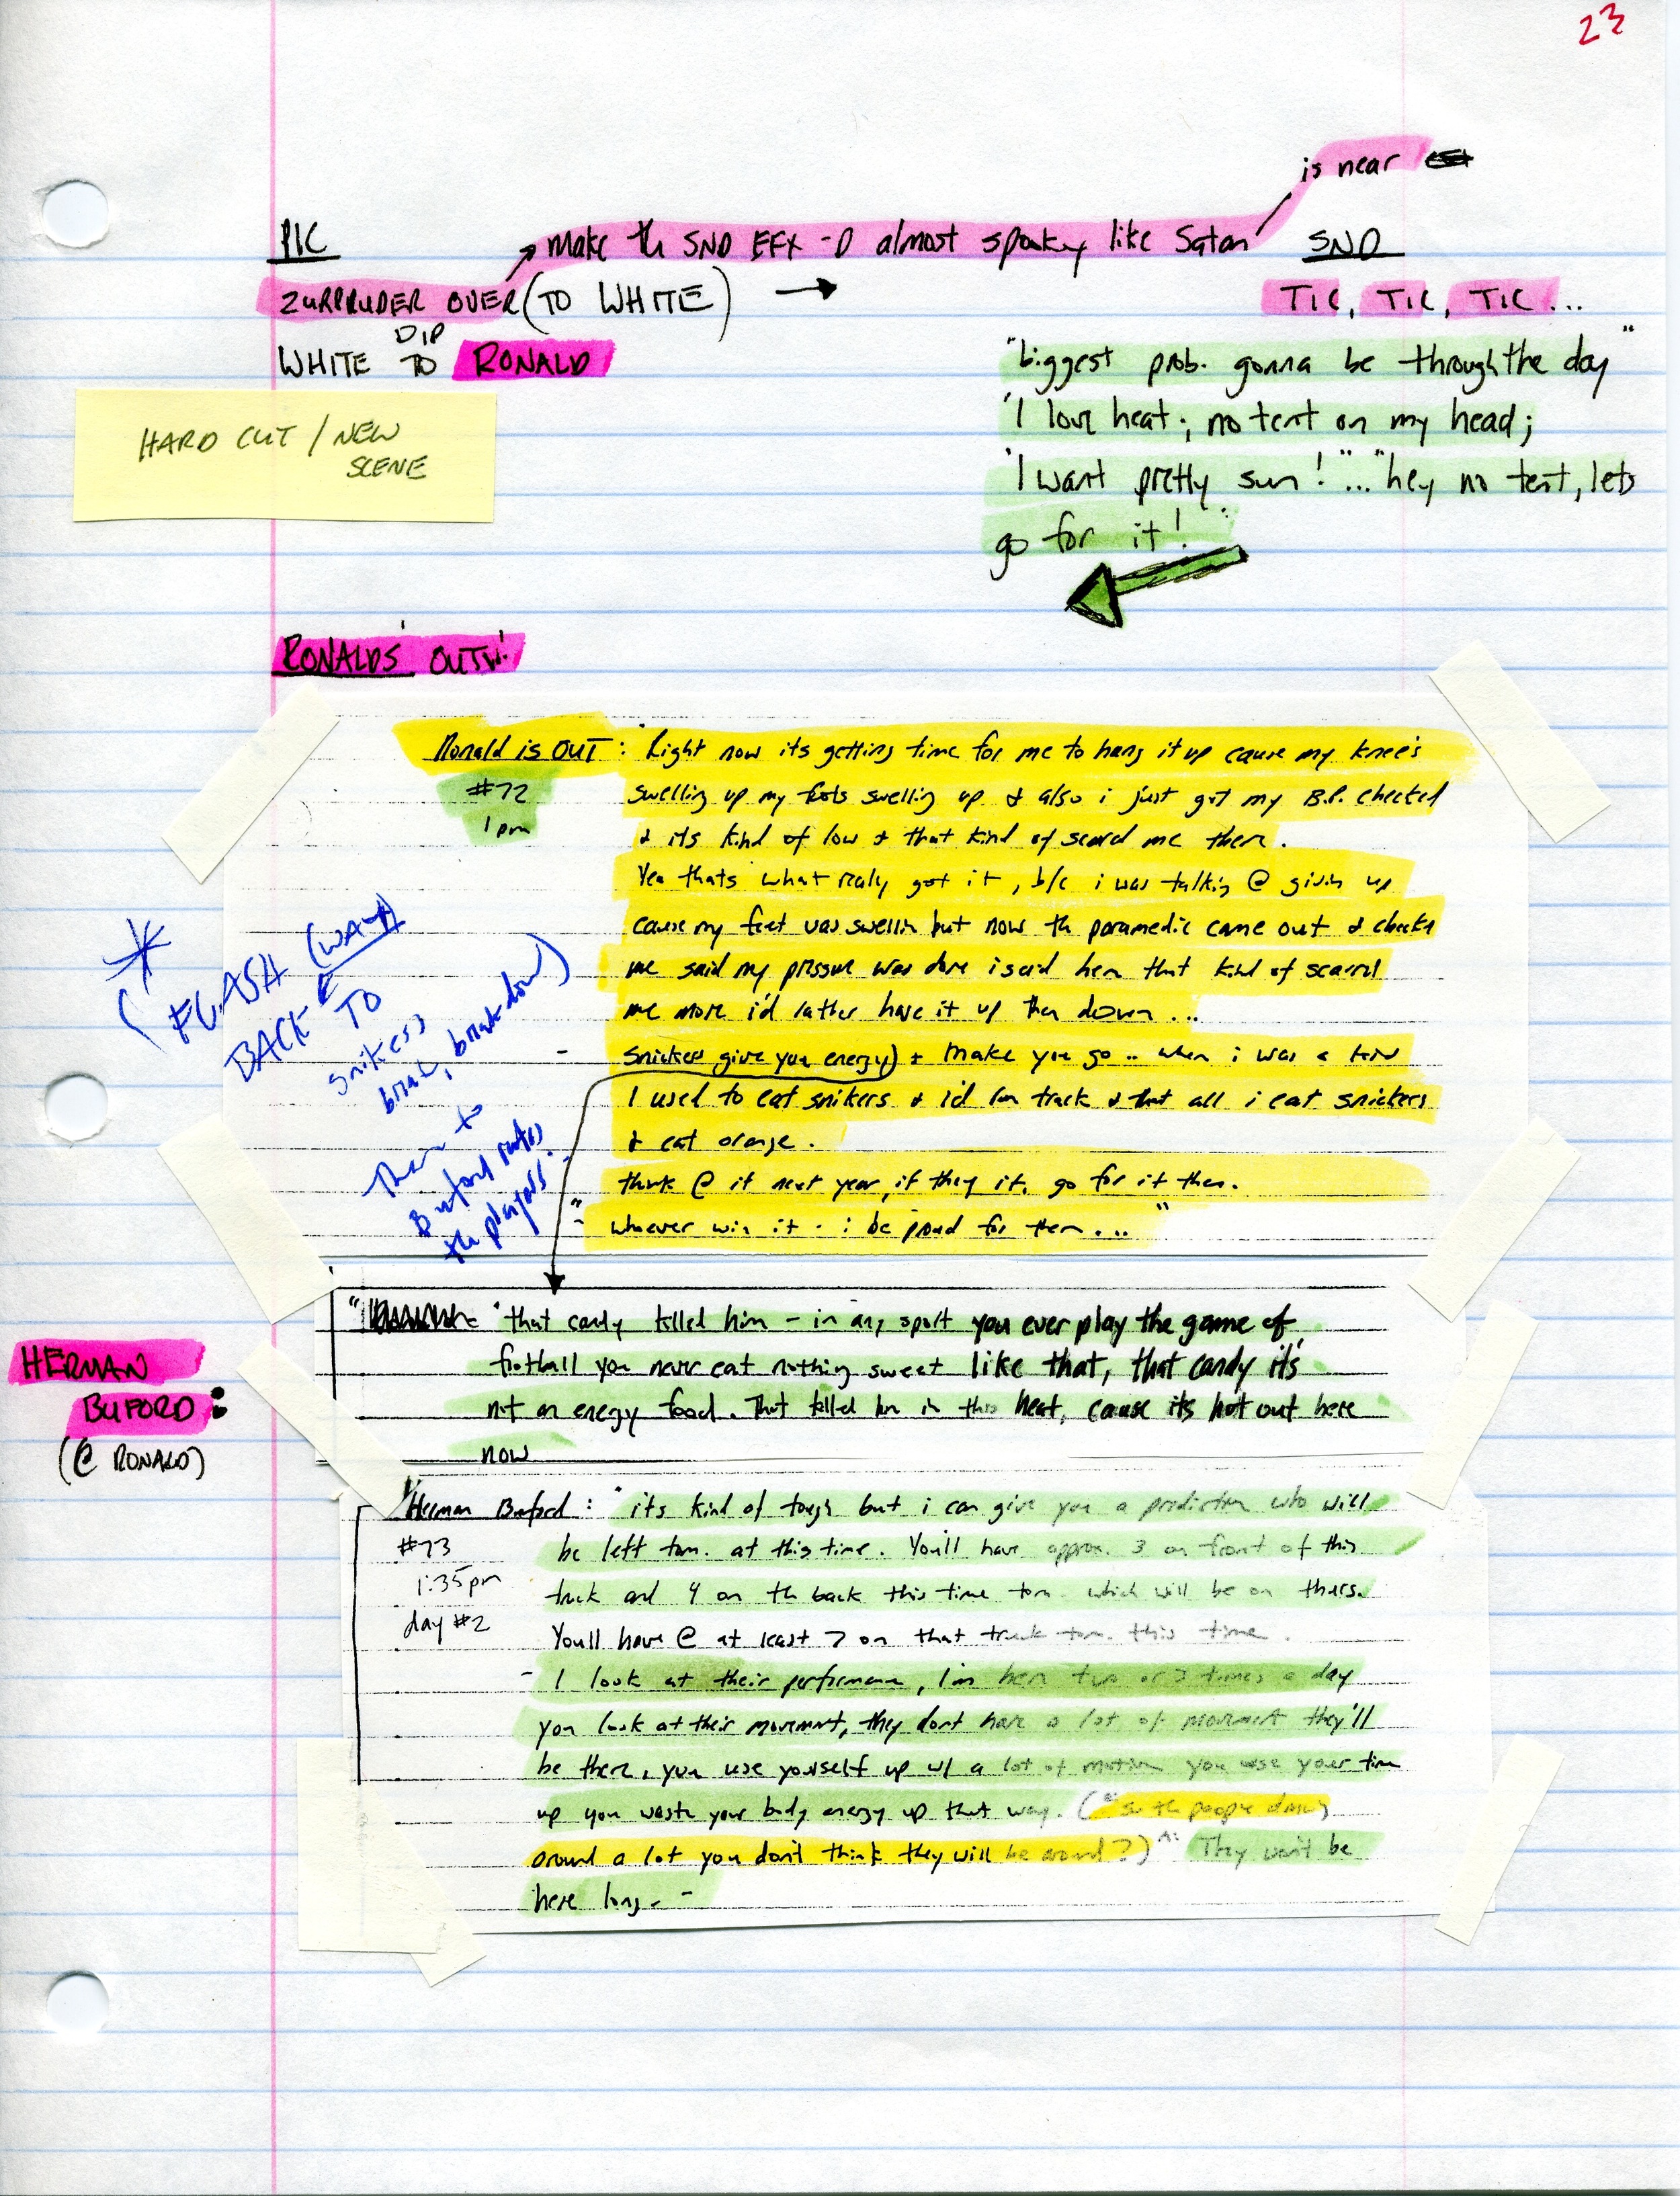 23
is near
PIC
make the SND EFX - almost spooky like Satan
SND
ZURPRUDER OVER (TO WHITE)
TIC, TIC, TIC...
DIP
WHITE TO RONALD
"biggest prob. gonna be through the day"
"I love heat; no tent on my head;
HARD CUT / NEW
SCENE
"I want pretty sun!"..."hey no tent, lets
go for it!"
RONALDS OUT!
Ronald is OUT: "Right now its getting time for me to hang it up cause my knee's
#72
swelling up my foots swelling up & also i just got my B.P. checked
1pm
& its kind of low & that kind of scared me there.
Yea thats what realy got it, b/c i was talking @ givin up
cause my feet was swellin but now th paramedic came out & checke
me said my pressure was down i said hem that kind of scared
me more i'd rather have it up then down...
- snickers give you energy) & make you go.. when i was a kid
I used to eat snikers & i'd run track & that all i eat snickers
& eat orange.
think @ it next year, if they it, go for it then.
"- whoever win it - i be proud for them..."
* (FLASH (WAY)
BACK TO
snikers
break, breakdown)
Then to
Buford rates
the players.
HERMAN
BUFORD:
(@ RONALD)
"that candy killed him - in any sport you ever play the game of
football you never eat nothing sweet like that, that candy it's
not an energy food. That killed him in this heat, cause its hot out here
now
Herman Buford: "its kind of tough but i can give you a prediction who will
#73
be left tom. at this time. You'll have approx. 3 on front of this
1:35pm
truck and 4 on th back this time tom. which will be on thurs.
day #2
You'll have @ at least 7 on that truck tom. this time.
- I look at their performance, I'm here two or 3 times a day
you look at their movement, they dont have a lot of movement they'll
be there, you use yourself up w/ a lot of motion you use your time
up you waste your body energy up that way. ("so th people dancing
around a lot you don't think they will be around?)" A: They won't be
here long. -